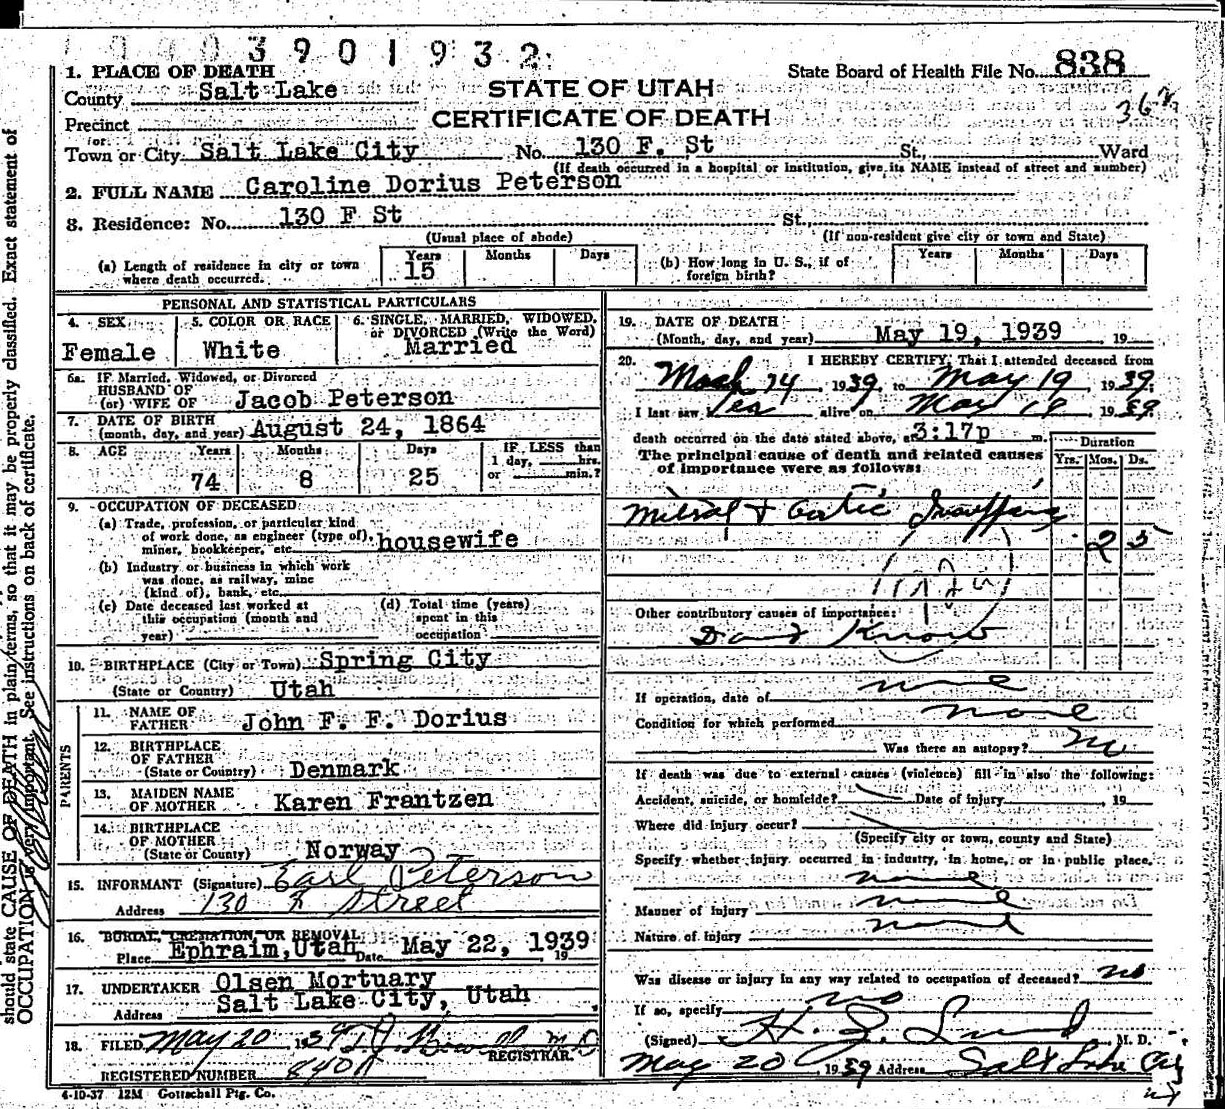 3901932
State Board of Health File No. 838
STATE OF UTAH
CERTIFICATE OF DEATH
1. PLACE OF DEATH
County Salt Lake
Precinct
or
Town or City Salt Lake City No. 130 F. St St., Ward
(If death occurred in a hospital or institution, give its NAME instead of street and number)
2. FULL NAME Caroline Dorius Peterson
3. Residence: No. 130 F St St.,
(Usual place of abode) (If non-resident give city or town and State)
(a) Length of residence in city or town where death occurred. Years 15 Months Days
(b) How long in U. S., if of foreign birth? Years Months Days
PERSONAL AND STATISTICAL PARTICULARS
4. SEX Female
5. COLOR OR RACE White
6. SINGLE, MARRIED, WIDOWED, or DIVORCED (Write the Word) Married
6a. IF Married, Widowed, or Divorced
HUSBAND OF
(or) WIFE OF Jacob Peterson
7. DATE OF BIRTH
(month, day, and year) August 24, 1864
8. AGE Years 74 Months 8 Days 25 IF LESS than 1 day, hrs. or min.?
9. OCCUPATION OF DECEASED
(a) Trade, profession, or particular kind of work done, as engineer (type of), miner, bookkeeper, etc. housewife
(b) Industry or business in which work was done, as railway, mine (kind of), bank, etc.
(c) Date deceased last worked at this occupation (month and year)
(d) Total time (years) spent in this occupation
10. BIRTHPLACE (City or Town) Spring City
(State or Country) Utah
PARENTS
11. NAME OF FATHER John F. F. Dorius
12. BIRTHPLACE OF FATHER
(State or Country) Denmark
13. MAIDEN NAME OF MOTHER Karen Frantzen
14. BIRTHPLACE OF MOTHER
(State or County) Norway
15. INFORMANT (Signature) Earl Peterson
Address 130 F Street
16. BURIAL, CREMATION, OR REMOVAL
Place Ephraim, Utah Date May 22, 1939 19
17. UNDERTAKER Olsen Mortuary
Address Salt Lake City, Utah
18. FILED May 20 1939
REGISTRAR.
REGISTERED NUMBER 840
4-10-37 12M Gottschall Ptg. Co.
19. DATE OF DEATH
(Month, day, and year) May 19, 1939 19
20. I HEREBY CERTIFY, That I attended deceased from
March 24 1939, to May 19 1939.
I last saw her alive on May 19 1939
death occurred on the date stated above, at 3:17p m.
The principal cause of death and related causes of importance were as follows:
Duration
Yrs. Mos. Ds.
Mitral + Aortic
2 5
Other contributory causes of importance:
Dont Know
If operation, date of none
Condition for which performed none
Was there an autopsy? no
If death was due to external causes (violence) fill in also the following:
Accident, suicide, or homicide? Date of injury , 19
Where did injury occur?
(Specify city or town, county and State)
Specify whether injury occurred in industry, in home, or in public place.
none
Manner of injury none
Nature of injury none
Was disease or injury in any way related to occupation of deceased? no
If so, specify no
(Signed) H. J. Lund, M. D.
May 20 1939 Address Salt Lake City
should state CAUSE OF DEATH in plain terms, so that it may be properly classified. Exact statement of
OCCUPATION is very important. See instructions on back of certificate.